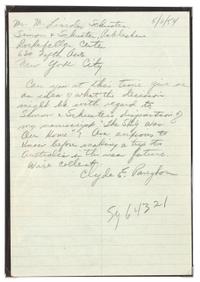 5/6/54
Mr. M. Lincoln Schuster
Simon & Schuster, Publishers
Rockefeller Center
630 Fifth Ave
New York City
Can you at this time give me
an idea of what the decision
might be with regard to
Simon & Schuster's disposition of
my manuscript "The Sky Was
Our Home"? Am anxious to
know before making a trip to
Australia in the near future.
Wire collect.
Clyde E. Pangborn
Sy 64321